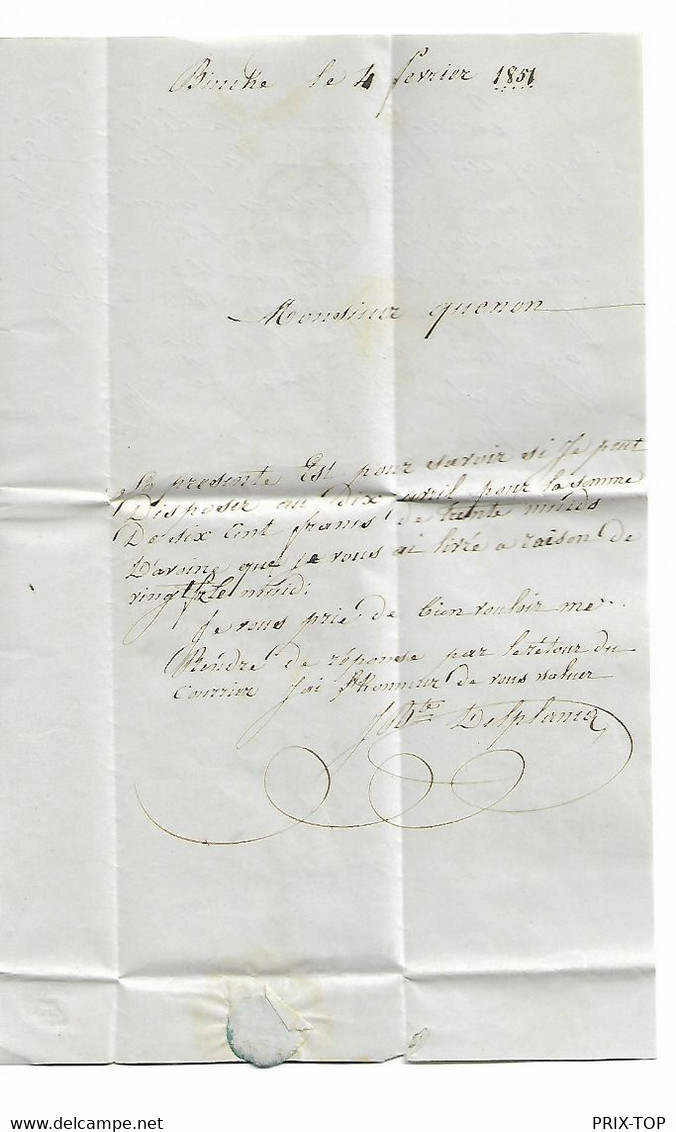 Binche le 4 fevrier 1851
Monsieur quenon
La presente Est pour savoir si Je peut
Disposer au Dix avril pour la somme
De six Cent francs de trente muids
D'avoine que je vous ai livré a raison de
vingt fr le muid.
Je vous prie de bien vouloir me
Rendre de réponse par le retour du
Courrier J'ai l'honneur de vous saluer
J Bte Delplancq
PRIX-TOP